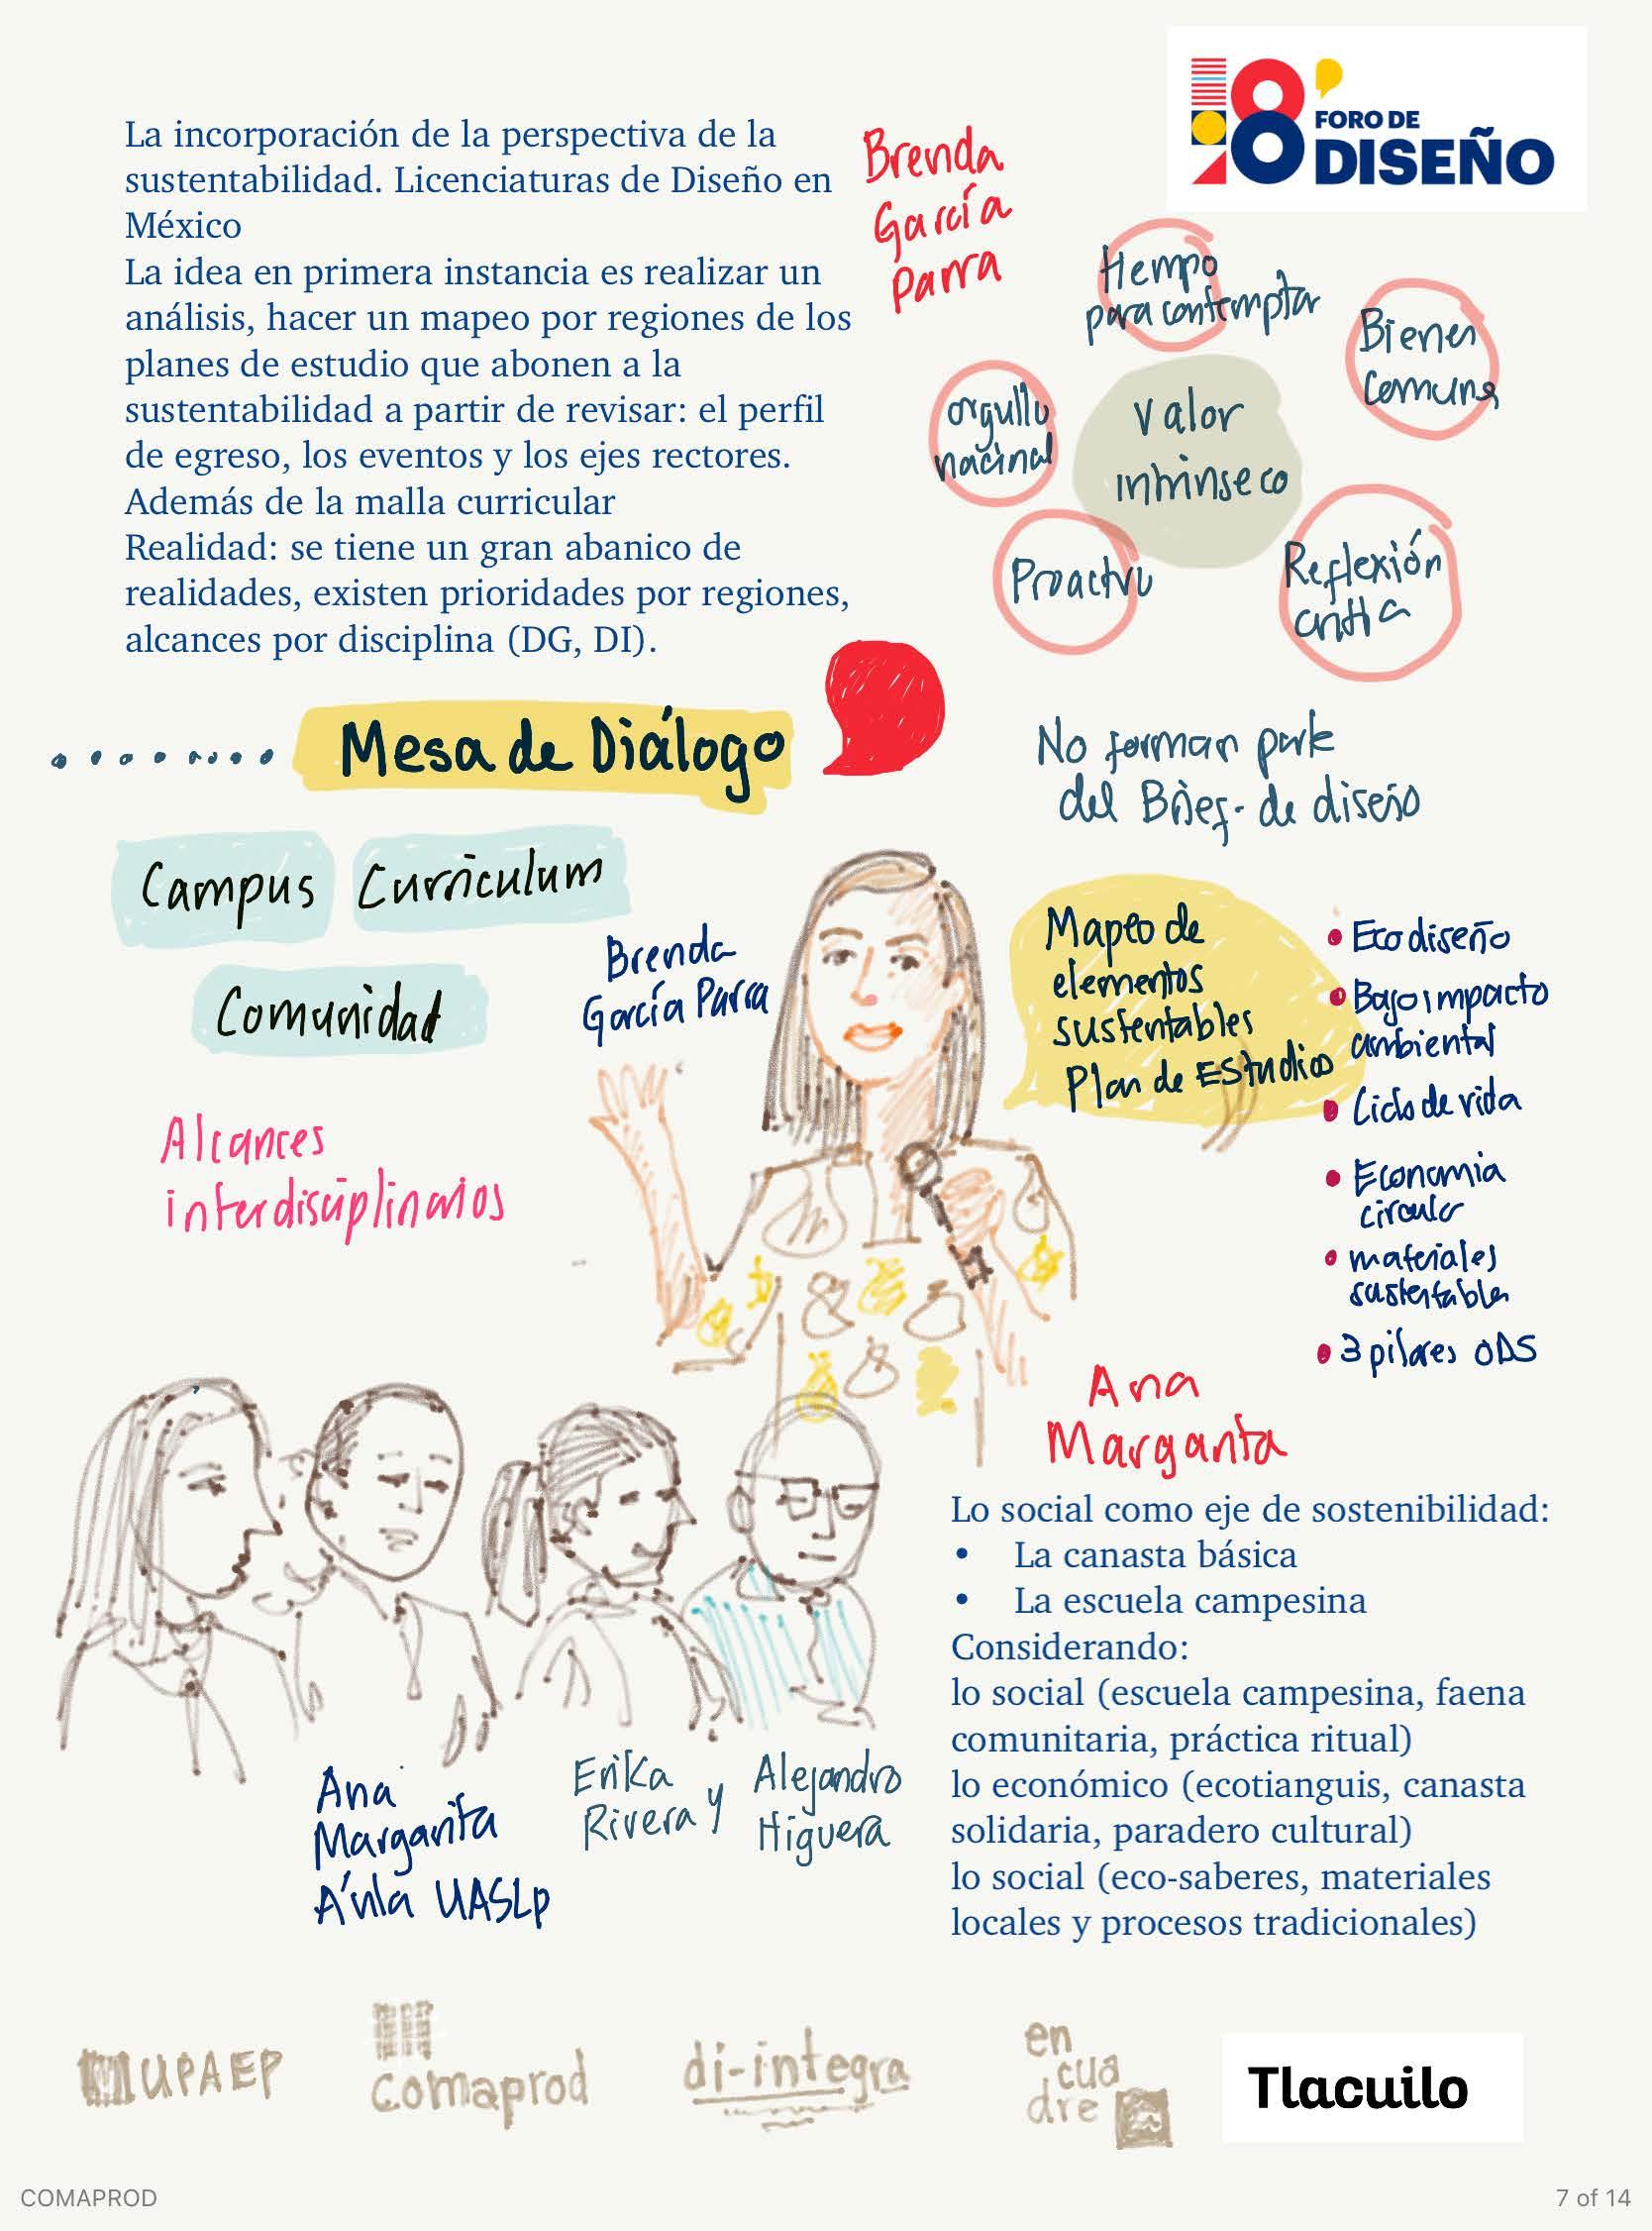 La incorporación de la perspectiva de la
sustentabilidad. Licenciaturas de Diseño en
México
La idea en primera instancia es realizar un
análisis, hacer un mapeo por regiones de los
planes de estudio que abonen a la
sustentabilidad a partir de revisar: el perfil
de egreso, los eventos y los ejes rectores.
Además de la malla curricular
Realidad: se tiene un gran abanico de
realidades, existen prioridades por regiones,
alcances por disciplina (DG, DI).
Brenda
García
Parra
18
FORO DE
DISEÑO
tiempo
para contemplar
Bienes
Comunes
orgullo
nacional
valor
intrinseco
Proactivo
Reflexión
critica
Mesa de Diálogo
No forman parte
del Brief. de diseño
Campus Curriculum
Comunidad
Brenda
García Parra
Mapeo de
elementos
sustentables
Plan de EStudios
• Eco diseño
• Bajo impacto
ambiental
• Ciclo de vida
• Economia
circular
• materiales
sustentables
• 3 pilares ODS
Alcances
interdisciplinarios
Ana
Margarita
Lo social como eje de sostenibilidad:
• La canasta básica
• La escuela campesina
Considerando:
lo social (escuela campesina, faena
comunitaria, práctica ritual)
lo económico (ecotianguis, canasta
solidaria, paradero cultural)
lo social (eco-saberes, materiales
locales y procesos tradicionales)
Ana
Margarita
Ávila UASLP
Erika
Rivera y
Alejandro
Higuera
UPAEP
Comaprod
di-integra
en
cua
dre
Tlacuilo
COMAPROD
7 of 14